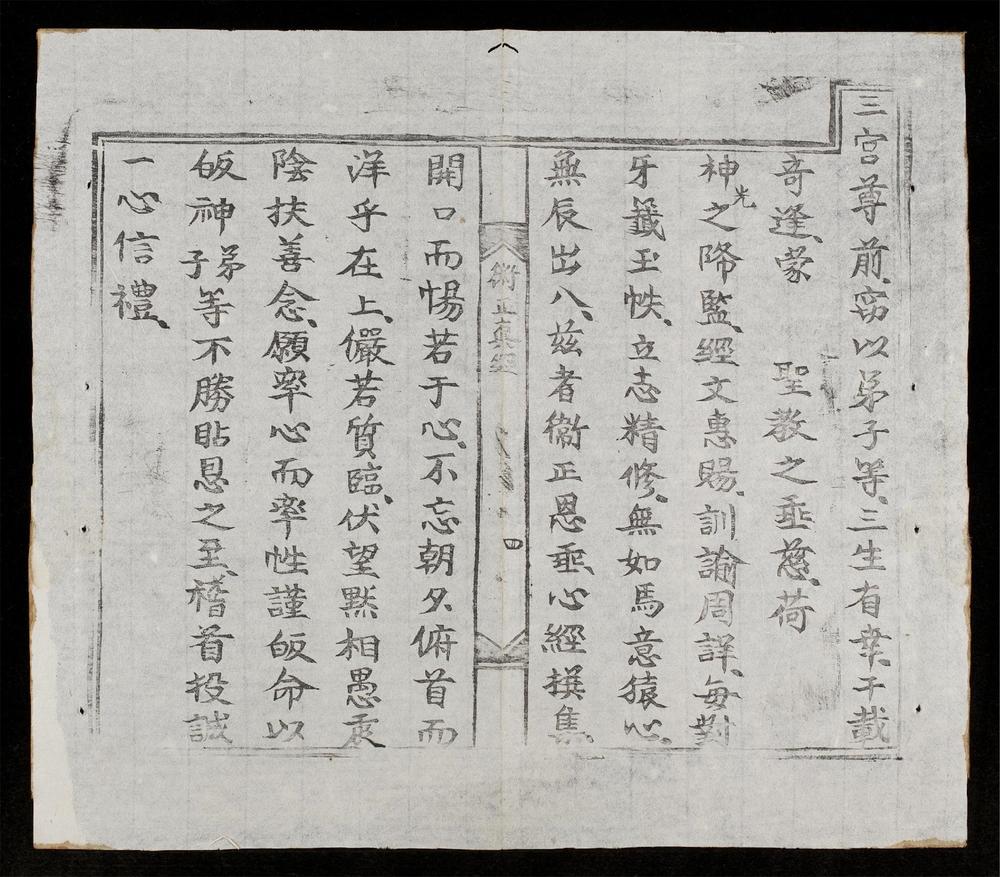 三宮尊前、窃以弟子等、三生有幸、千載
奇逢、蒙 聖教之垂慈、荷
神光之降監、經文惠賜、訓諭周詳、每對
牙籤玉帙、立志精修、無如馬意猿心、
無辰出入、兹者衞正恩垂、心經撰集
衛正真經
四
開口而惕若于心、不忘朝夕、俯首而
洋乎在上、儼若質臨、伏望默相愚衷
陰扶善念、願率心而率性謹皈命以
皈神弟子等不勝貼恩之至、稽首投誠
一心信禮、